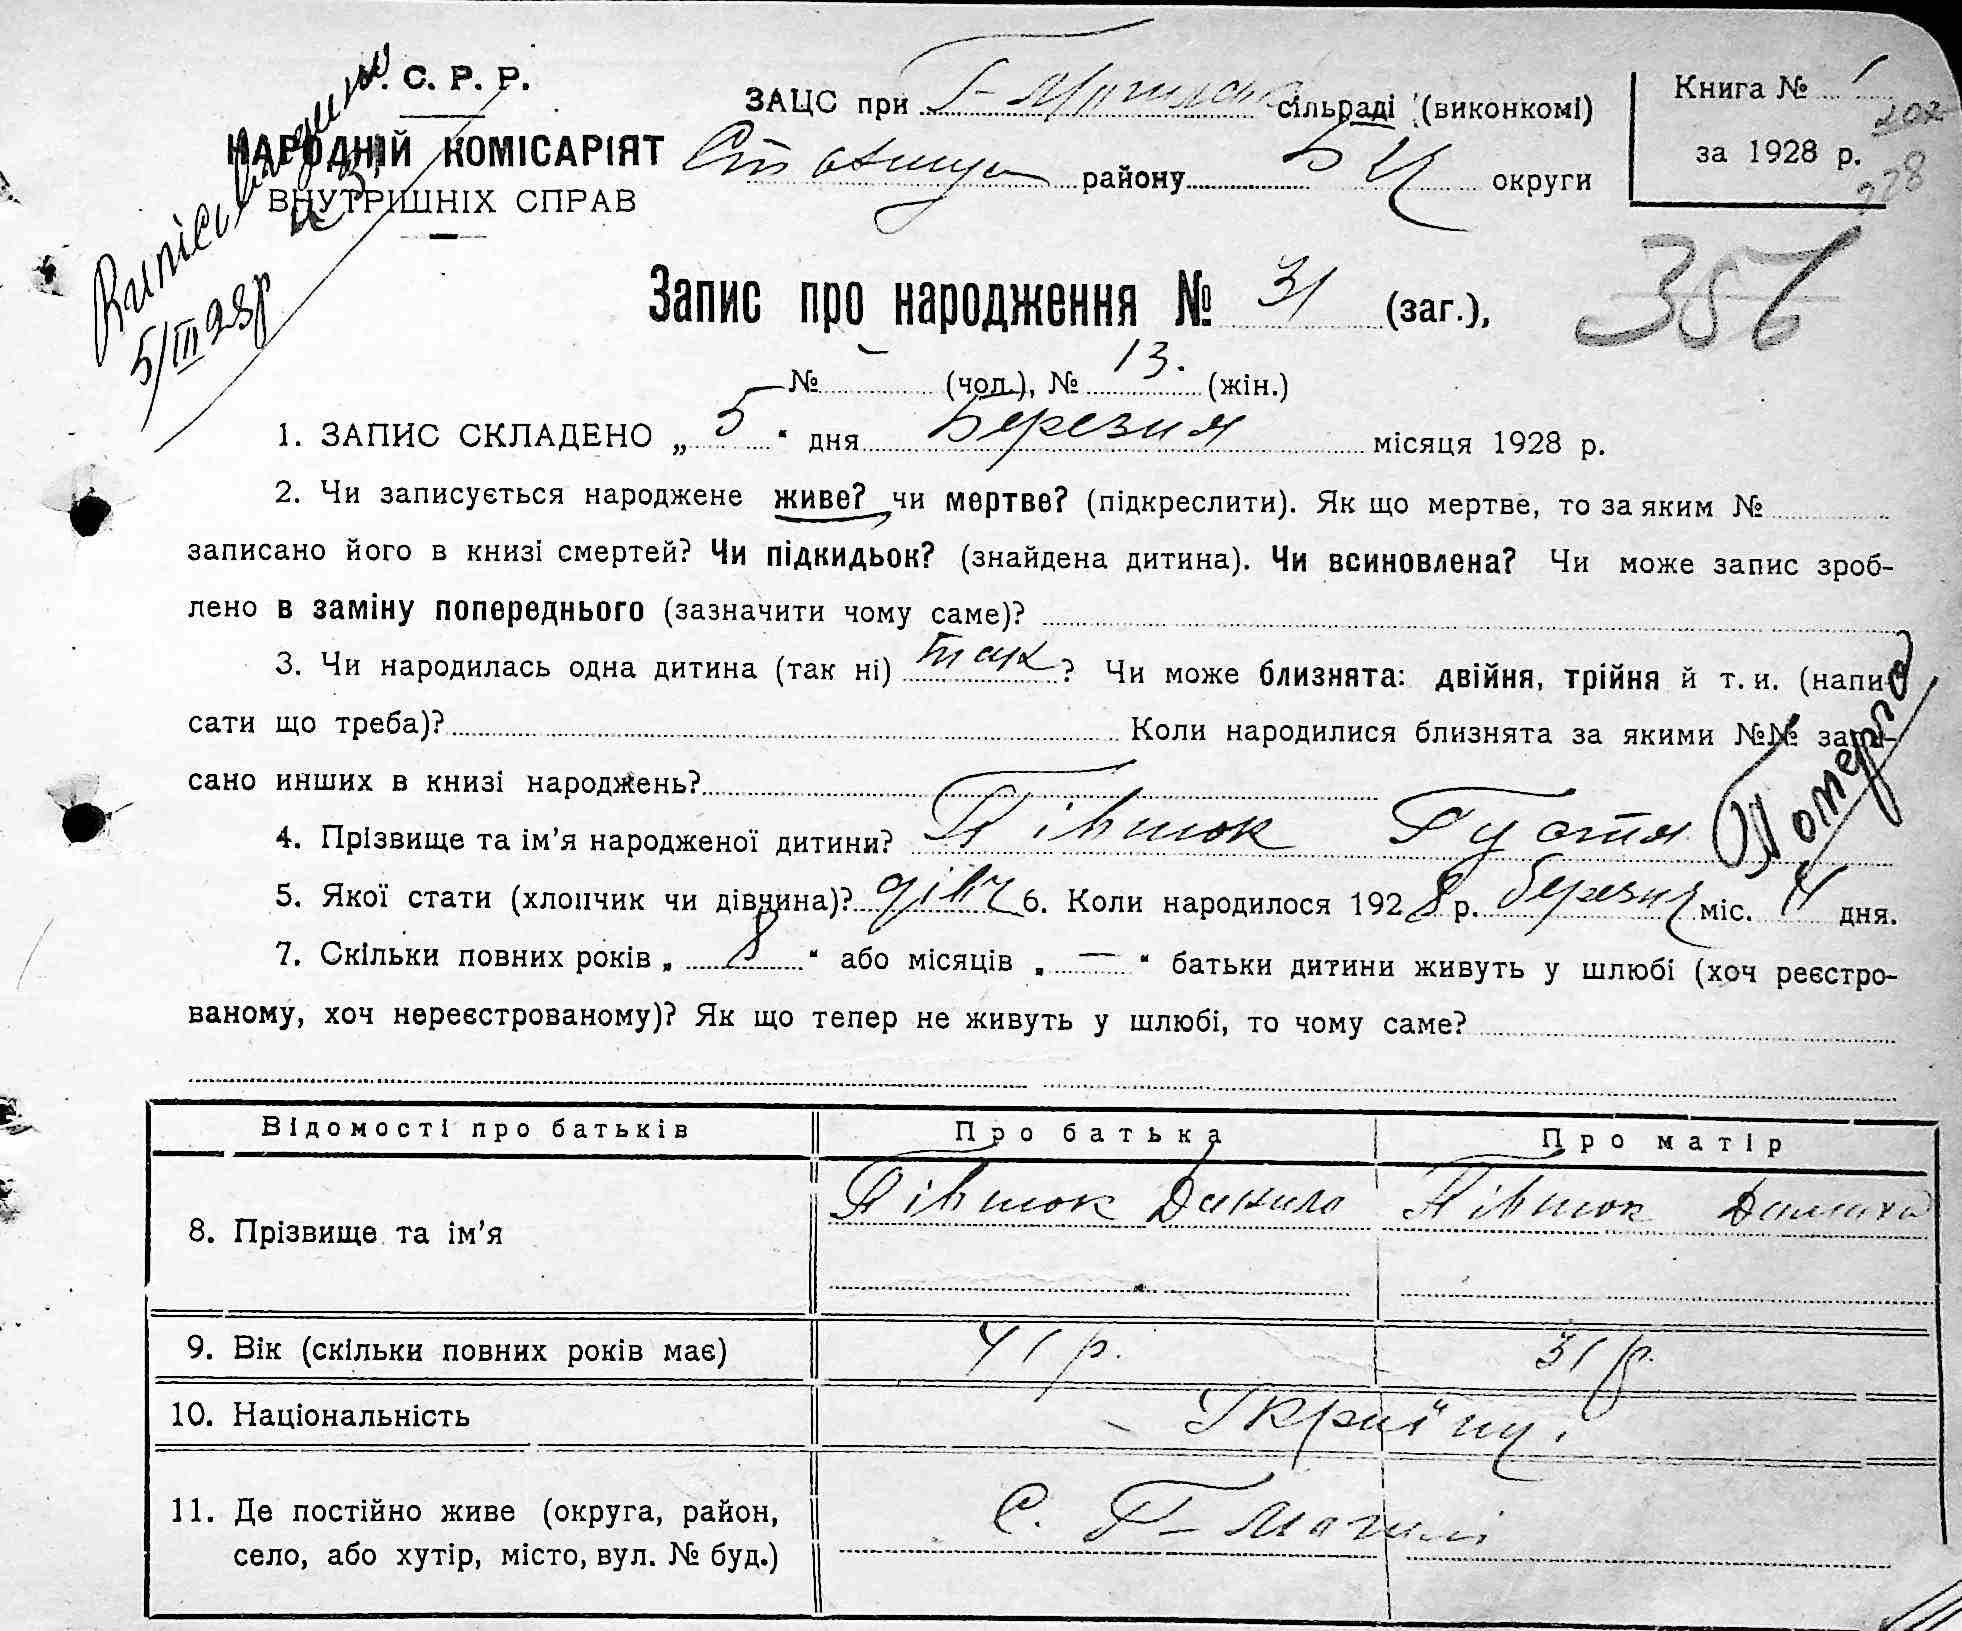 С. Р. Р.
НАРОДНІЙ КОМІСАРІЯТ
ВНУТРІШНІХ СПРАВ
5/III 28р
ЗАЦС при сільраді (виконкомі)
району БЦ округи
Книга № 1
за 1928 р.
202
228
356
Запис про народження № 31 (заг.),
№ — (чол.), № 13. (жін.)
1. ЗАПИС СКЛАДЕНО „ 5 “ дня Березня місяця 1928 р.
2. Чи записується народжене живе? чи мертве? (підкреслити). Як що мертве, то за яким №
записано його в книзі смертей? Чи підкидьок? (знайдена дитина). Чи всиновлена? Чи може запис зроб-
лено в заміну попереднього (зазначити чому саме)?
3. Чи народилась одна дитина (так ні) так? Чи може близнята: двійня, трійня й т. и. (напи-
сати що треба)? Коли народилися близнята за якими №№ запи-
сано инших в книзі народжень?
4. Прізвище та ім’я народженої дитини? Півтюк Густя
Померла
5. Якої стати (хлопчик чи дівчина)? дівч 6. Коли народилося 1928 р. березня міс. 4 дня.
7. Скільки повних років „ 8 “ або місяців „ — “ батьки дитини живуть у шлюбі (хоч реєстро-
ваному, хоч нереєстрованому)? Як що тепер не живуть у шлюбі, то чому саме?
Відомості про батьків Про батька Про матір
8. Прізвище та ім’я Півтюк Данило Півтюк
9. Вік (скільки повних років має) 41 р. 31 р.
10. Національність Україн.
11. Де постійно живе (округа, район,
село, або хутір, місто, вул. № буд.) С. Г-Могилі